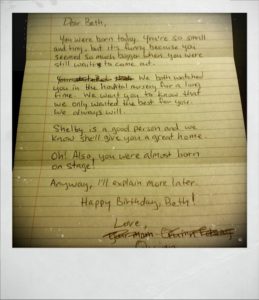 Dear Beth,
You were born today. You're so small
and tiny, but it's funny because you
seemed so much bigger when you were
still waiting to come out.
We both watched
you in the hospital nursery for a long
time. We want you to know that
we only wanted the best for you.
We always will.
Shelby is a good person and we
know she'll give you a great home.
Oh! Also, you were almost born
on stage!
Anyway, I'll explain more later.
Happy Birthday, Beth!
Love,
Your Mom
Quinn